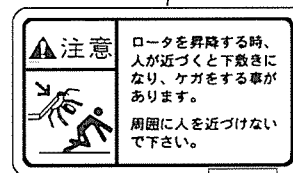 注意
ロータを昇降する時、
人が近づくと下敷きに
なり、ケガをする事が
あります。
周囲に人を近づけない
で下さい。